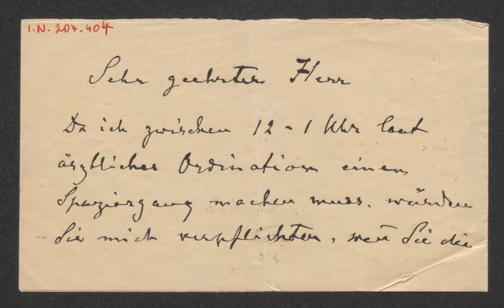 I.N. 207.404
Sehr geehrter Herr
Da ich zwischen 12 - 1 Uhr laut
ärztlicher Ordination einen
Spaziergang machen muss, würden
Sie mich verpflichten, wen Sie die